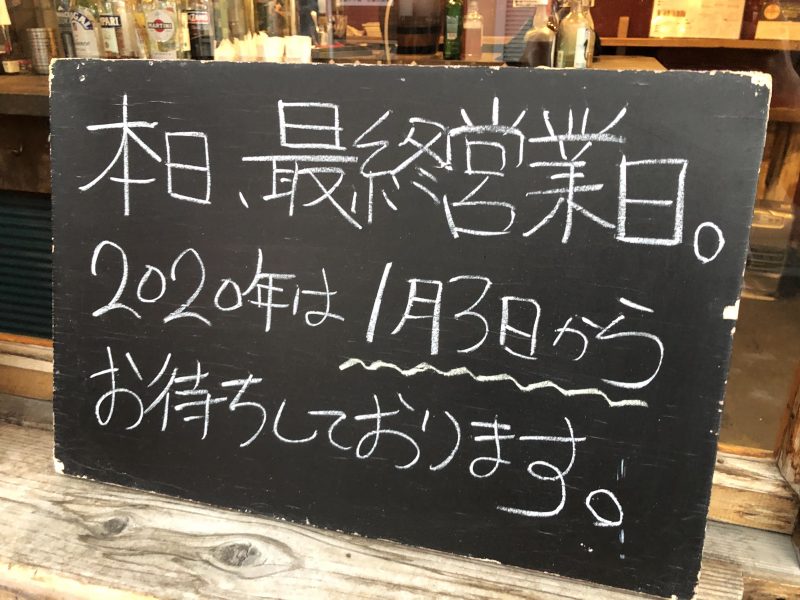 本日、最終営業日。
2020年は1月3日から
お待ちしております。
MARTINI